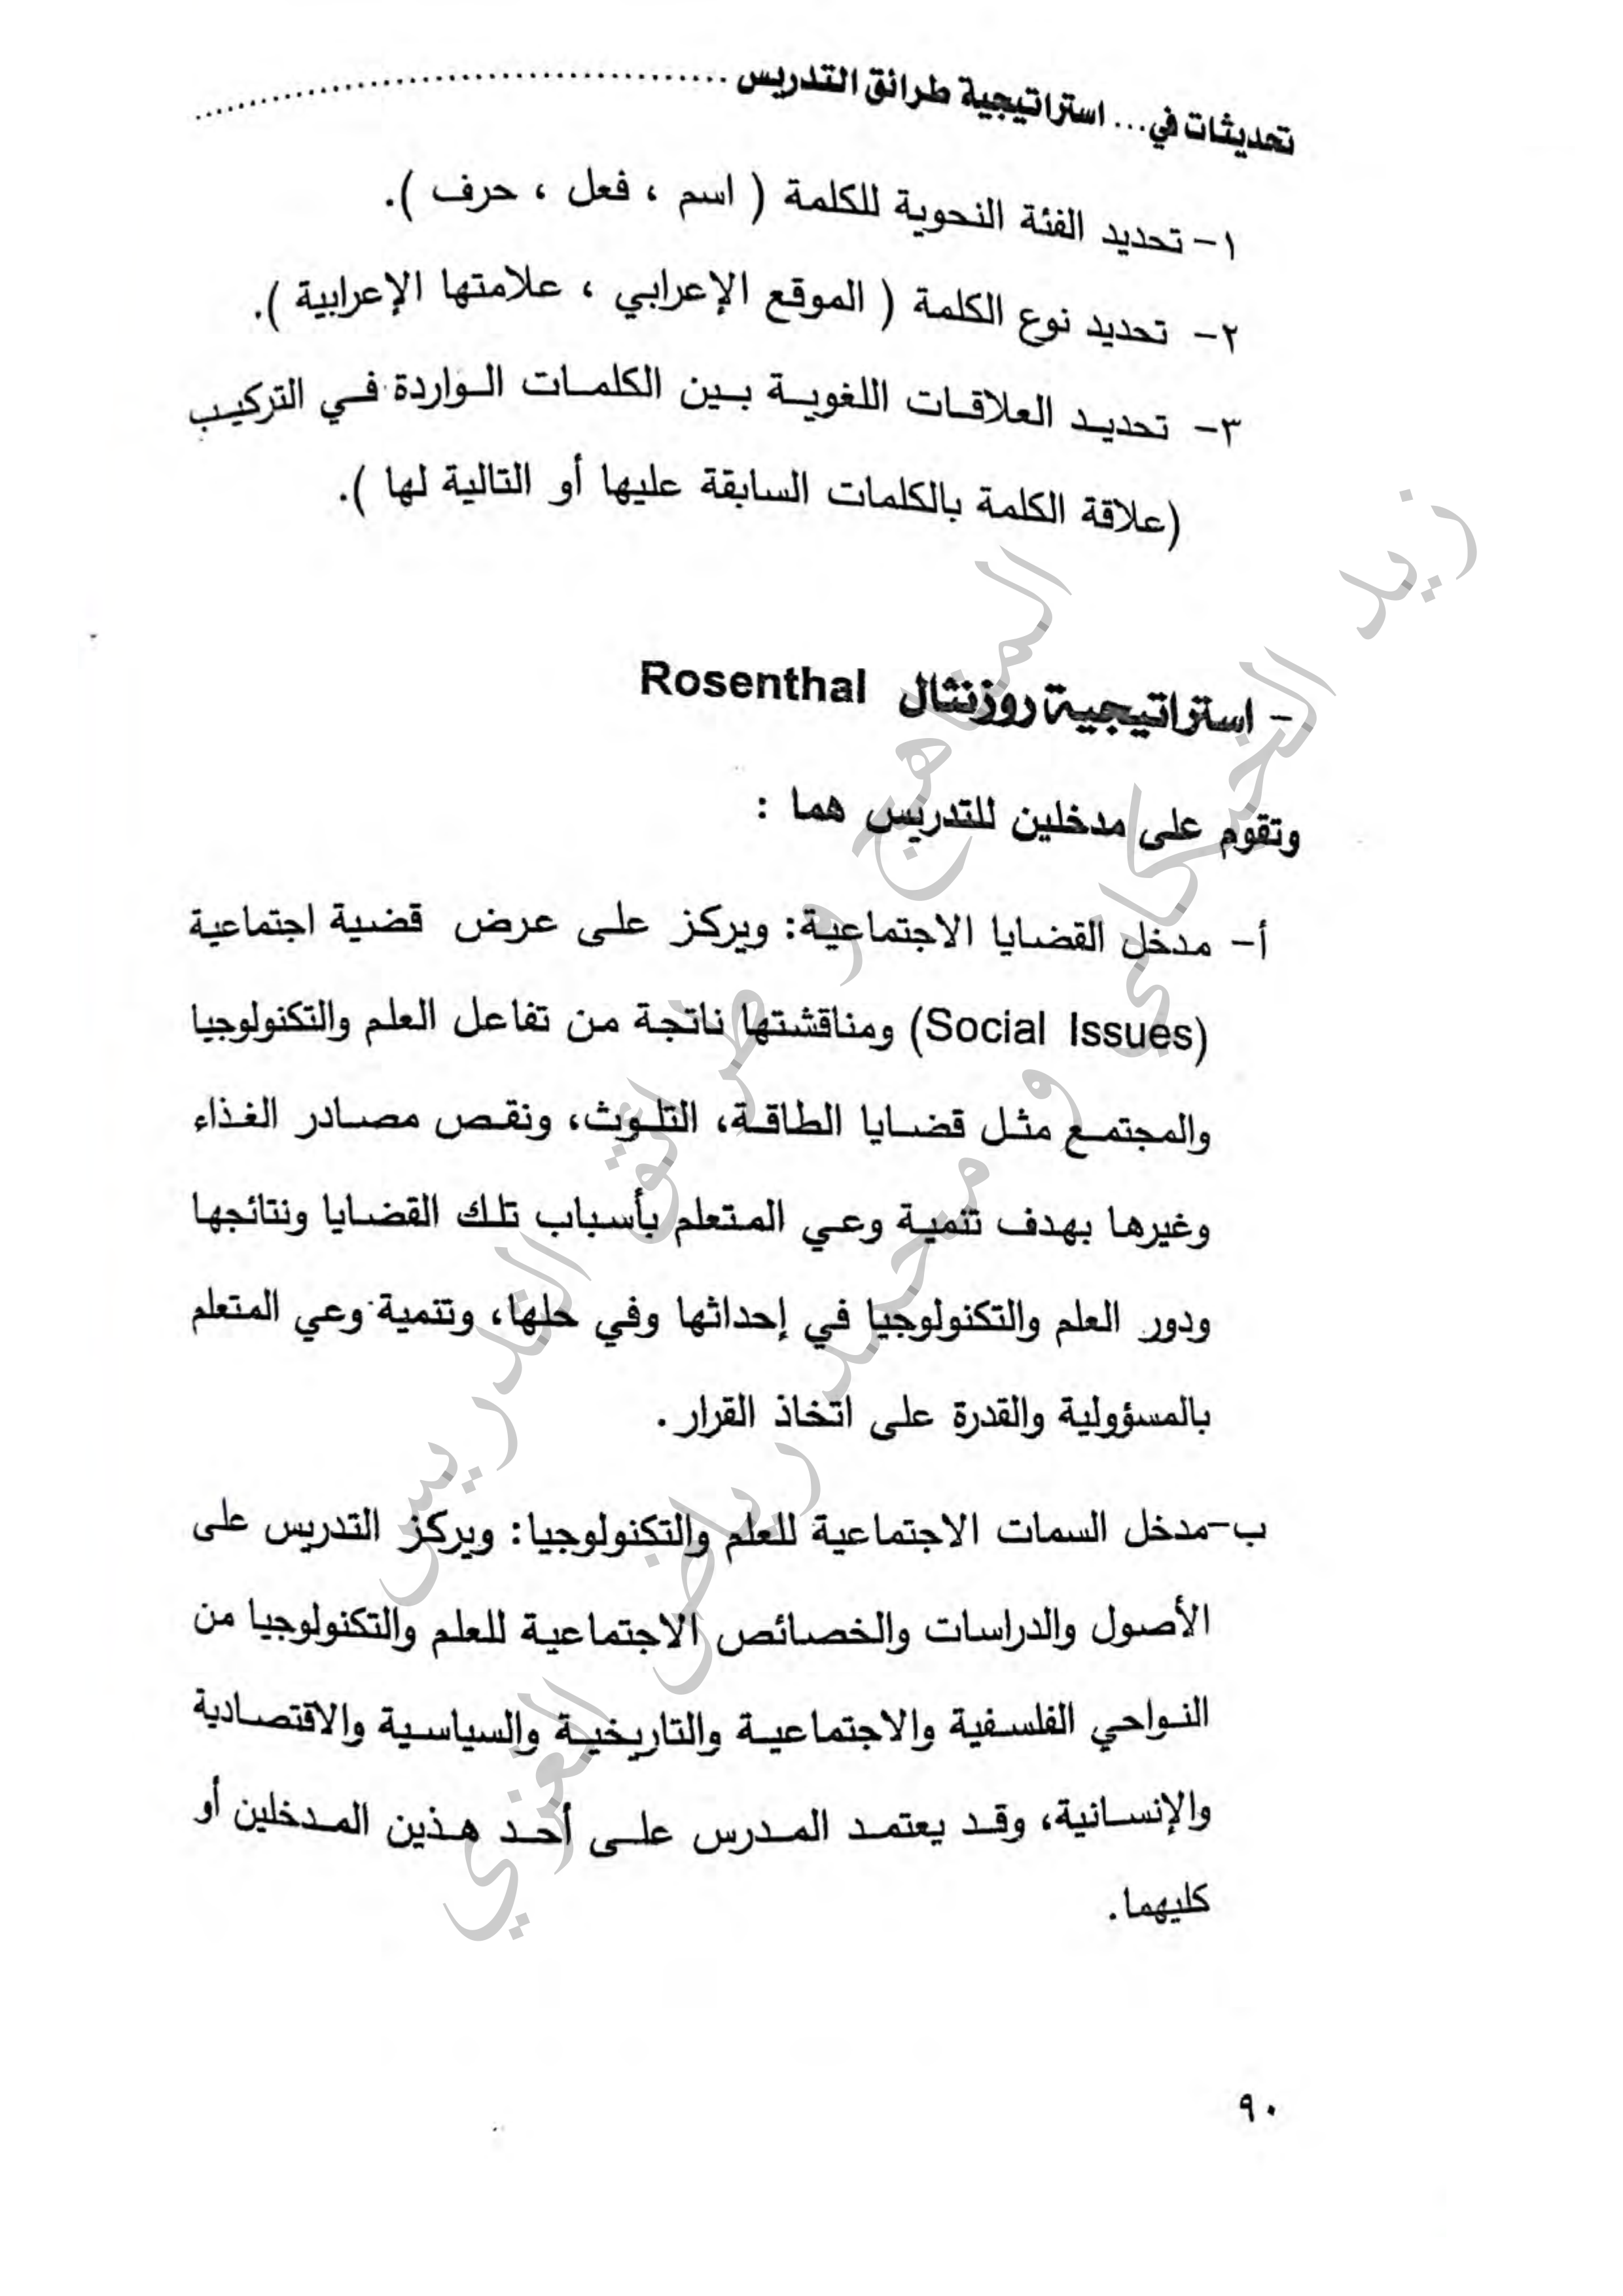 تحديثات في... استراتيجية طرائق التدريس
١- تحديد الفئة النحوية للكلمة ( اسم ، فعل ، حرف ).
٢- تحديد نوع الكلمة ( الموقع الإعرابي ، علامتها الإعرابية ).
٣- تحديد العلاقات اللغوية بين الكلمات الواردة في التركيب
(علاقة الكلمة بالكلمات السابقة عليها أو التالية لها ).
- استراتيجية روزنثال Rosenthal
وتقوم على مدخلين للتدريس هما :
أ- مدخل القضايا الاجتماعية: ويركز على عرض قضية اجتماعية
(Social Issues) ومناقشتها ناتجة من تفاعل العلم والتكنولوجيا
والمجتمع مثل قضايا الطاقة، التلوث، ونقص مصادر الغذاء
وغيرها بهدف تنمية وعي المتعلم بأسباب تلك القضايا ونتائجها
ودور العلم والتكنولوجيا في إحداثها وفي حلها، وتنمية وعي المتعلم
بالمسؤولية والقدرة على اتخاذ القرار.
ب-مدخل السمات الاجتماعية للعلم والتكنولوجيا: ويركز التدريس على
الأصول والدراسات والخصائص الاجتماعية للعلم والتكنولوجيا من
النواحي الفلسفية والاجتماعية والتاريخية والسياسية والاقتصادية
والإنسانية، وقد يعتمد المدرس على أحد هذين المدخلين أو
كليهما.
٩٠
المناهج و طرائق التدريس
زيد الخيكاني و محمد رياض العزي